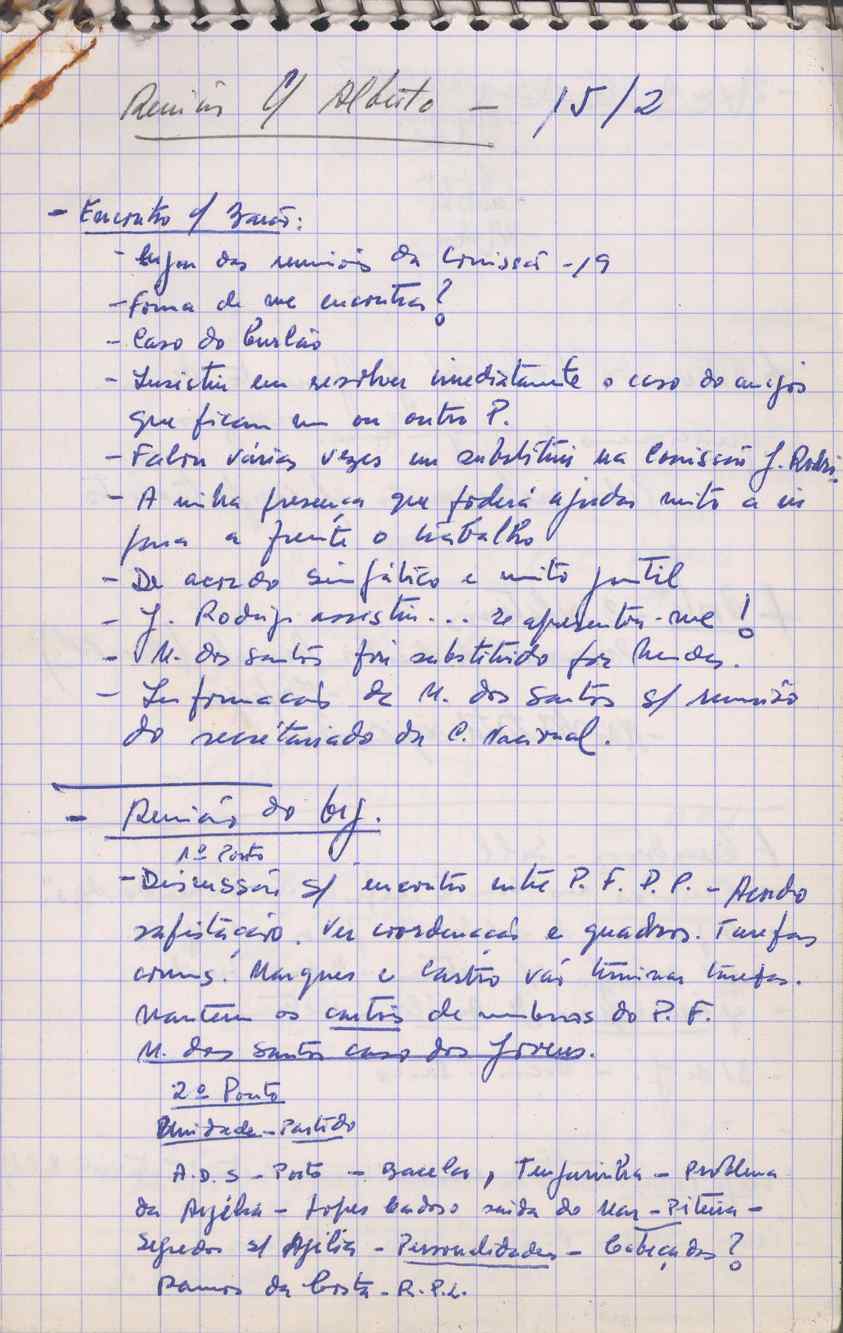 Reunião c/ Alberto - 15/2
- Encontro c/ :
- Lugar das reuniões da Comissão - 19
- Forma de me encontrar?
- Caso do
- Insistiu em resolver imediatamente o caso do amigos
que ficam um ou outro P.
- Falou várias vezes em substituir na Comissão J. Rodri.
- A minha presença que poderá ajudar muito a ir
para a frente o trabalho
- De acordo simpático e muito gentil
- J. Rodrig assistiu... reapresentou-me!
- M. dos Santos foi substituido por Mendes.
- Informações de M. dos Santos s/ reunião
do secretariado da C. Nacional.
- Reunião do Org.
1º Ponto
- Discussão s/ encontro entre P. F. P. P. - Acordo
. Ver coordenação e quadros. Tarefas
comuns. Marques e Castro vão terminar tarefas.
Mantem os cartões de membros do P. F.
M. dos Santos caso dos Jovens.
2º Ponto
Unidade - Partido
A.D.S - Porto - Bacelar, Tengarrinha - Problema
da Argélia - Lopes Cardoso saída do - Piteira -
Segredos s/ Argélia - Personalidades - Cabeçadas?
Ramos da Costa - R.P.L.